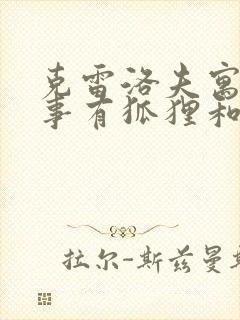 克雷洛夫寓
事有狐狸和
拉尔-斯兹曼